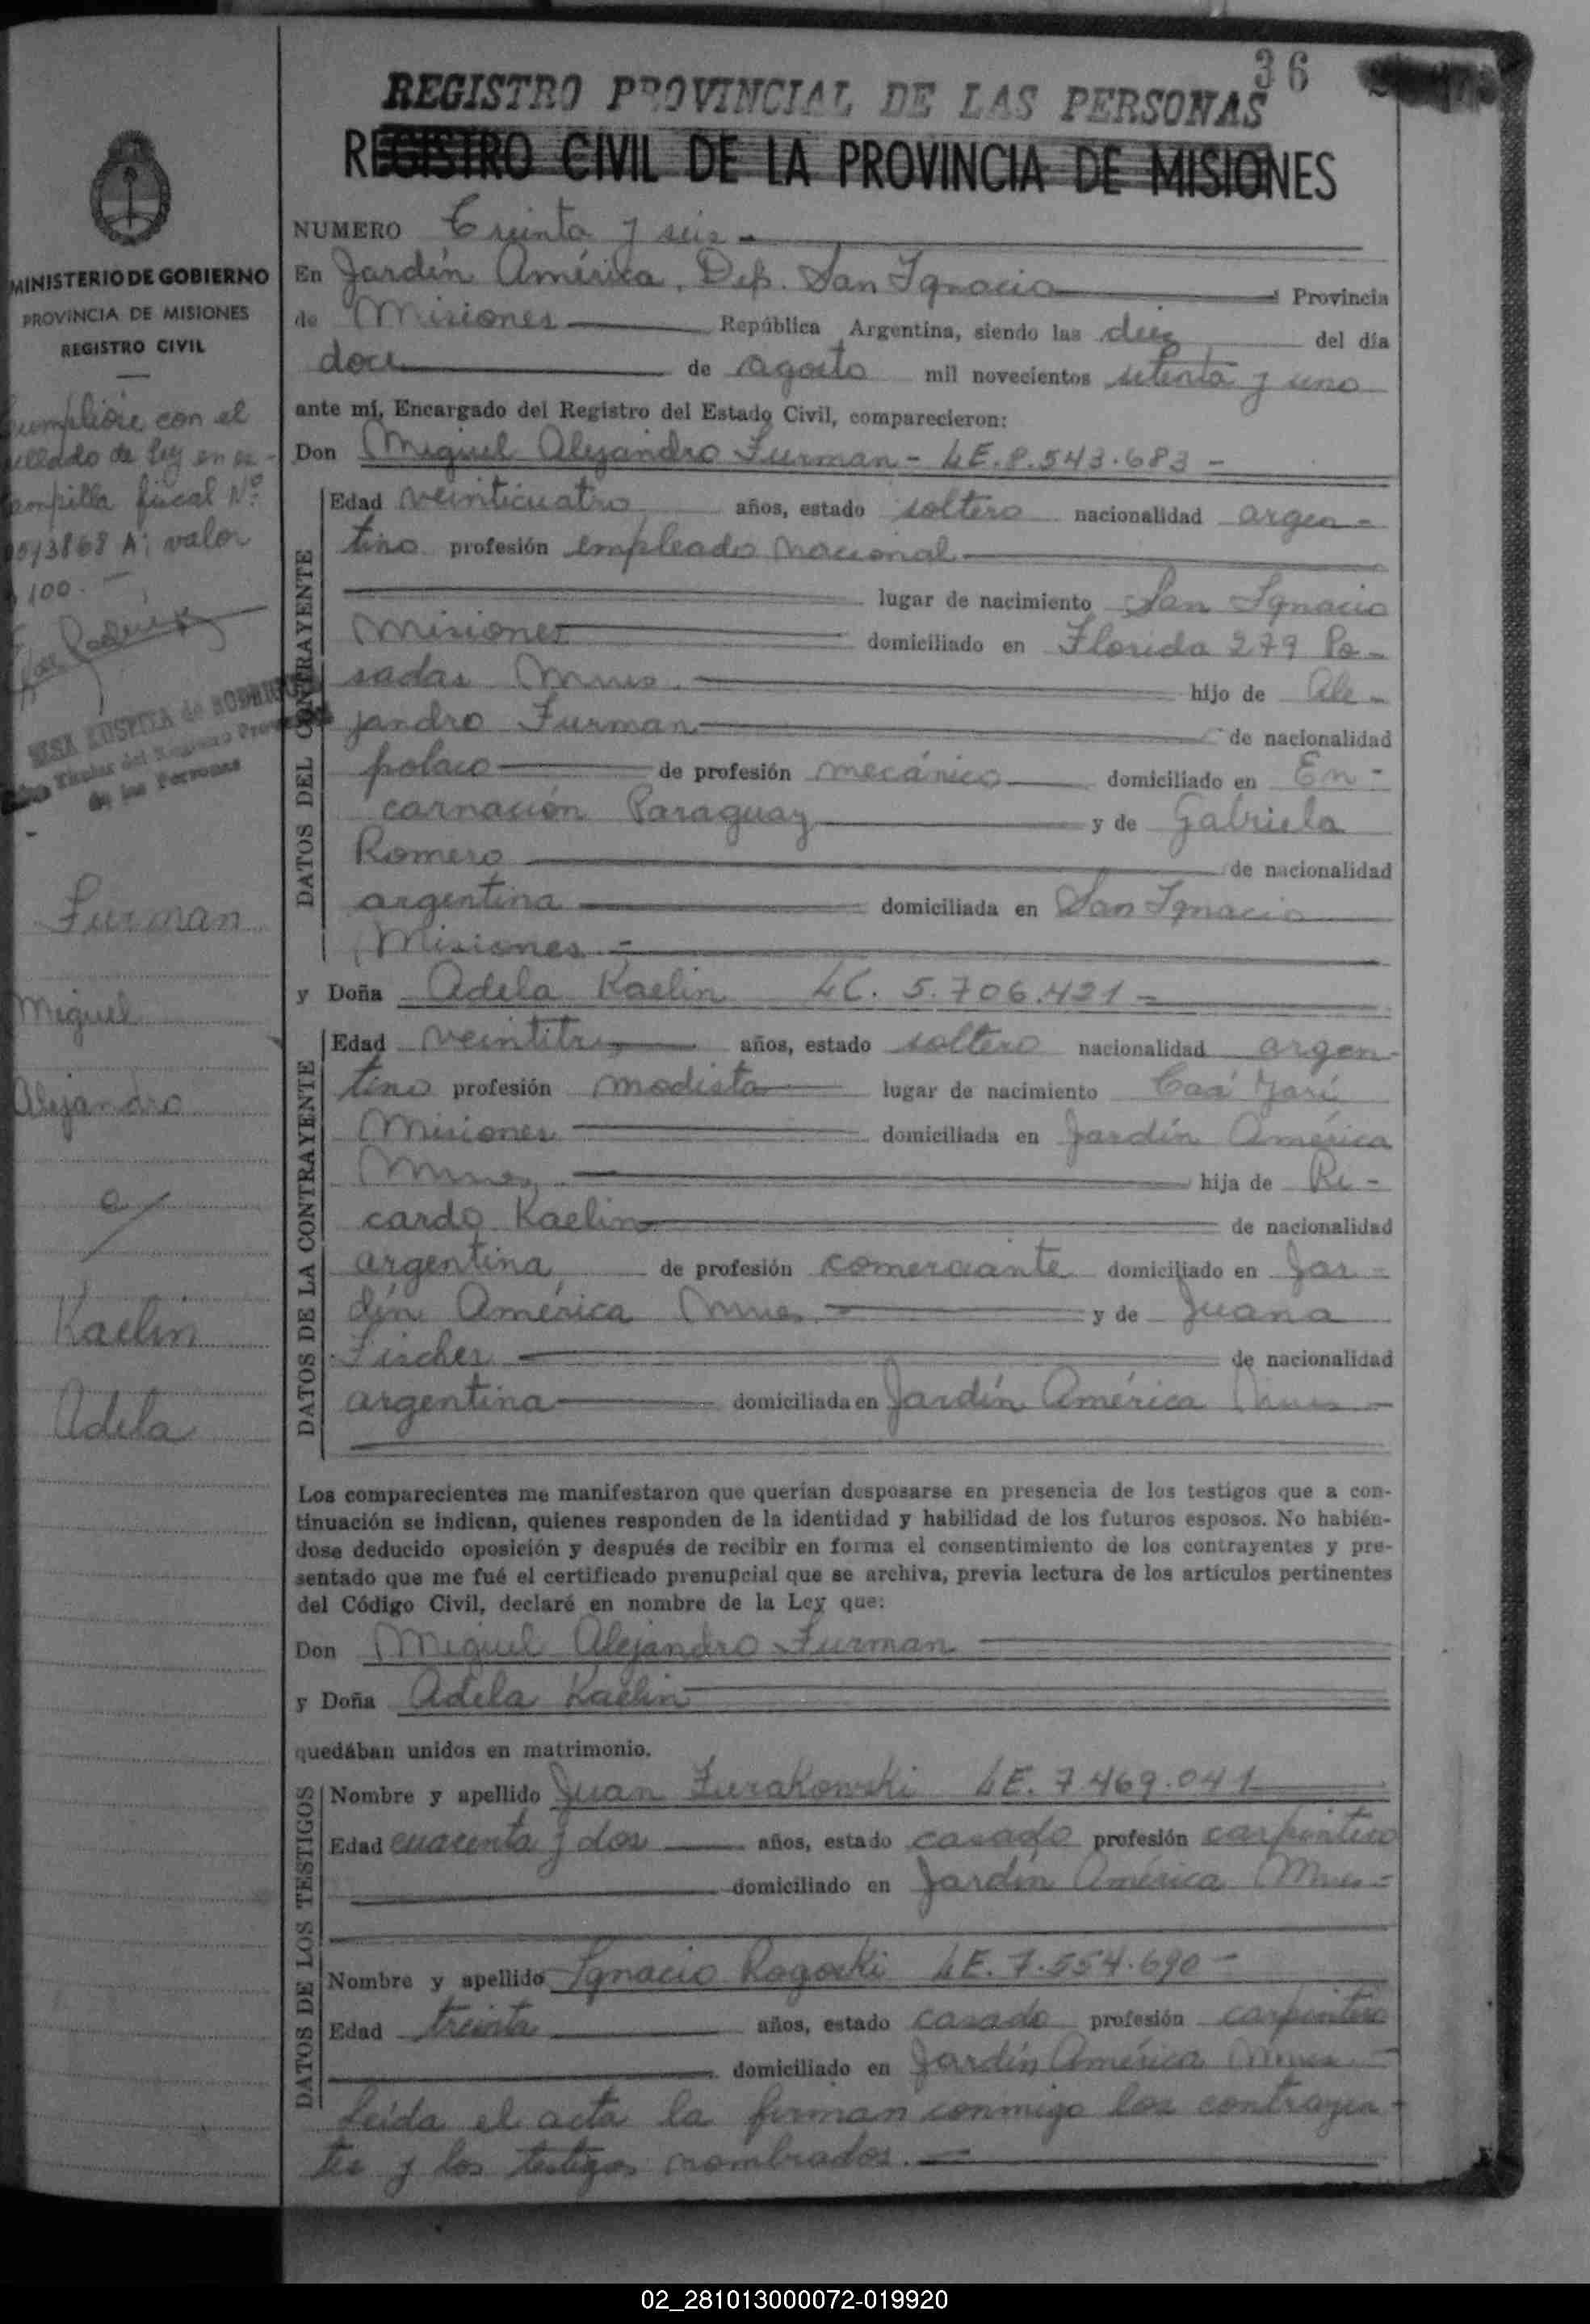 36
REGISTRO PROVINCIAL DE LAS PERSONAS
REGISTRO CIVIL DE LA PROVINCIA DE MISIONES
MINISTERIO DE GOBIERNO
PROVINCIA DE MISIONES
REGISTRO CIVIL
cumpliose con el
sellado de ley en es-
tampilla fiscal Nº
valor
100.-
de los Personas
Furman
Miguel
Alejandro
c/
Kaelin
Adela
NUMERO Treinta y seis
En Jardín América, Dep. San Ignacio Provincia
de Misiones República Argentina, siendo las diez del día
doce de agosto mil novecientos setenta y uno
ante mí, Encargado del Registro del Estado Civil, comparecieron:
Don Miguel Alejandro Furman - LE. 8.543.683 -
DATOS DEL CONTRAYENTE
Edad veinticuatro años, estado soltero nacionalidad argen-
tino profesión empleado nacional
lugar de nacimiento San Ignacio
Misiones domiciliado en Florida 279 Po-
sadas Mnes hijo de Ale-
jandro Furman de nacionalidad
polaco de profesión mecánico domiciliado en En-
carnación Paraguay y de Gabriela
Romero de nacionalidad
argentina domiciliada en San Ignacio
Misiones -
y Doña Adela Kaelin LC. 5.706.421 -
DATOS DE LA CONTRAYENTE
Edad veintitres años, estado soltero nacionalidad argen-
tino profesión modista lugar de nacimiento Caá Yarí
Misiones domiciliada en Jardín América
Mnes hija de Ri-
cardo Kaelin de nacionalidad
argentina de profesión comerciante domiciliado en Jar-
dín América Mnes y de Juana
Fischer de nacionalidad
argentina domiciliada en Jardín América Mnes -
Los comparecientes me manifestaron que querían desposarse en presencia de los testigos que a con-
tinuación se indican, quienes responden de la identidad y habilidad de los futuros esposos. No habién-
dose deducido oposición y después de recibir en forma el consentimiento de los contrayentes y pre-
sentado que me fué el certificado prenupcial que se archiva, previa lectura de los artículos pertinentes
del Código Civil, declaré en nombre de la Ley que:
Don Miguel Alejandro Furman
y Doña Adela Kaelin
quedában unidos en matrimonio.
DATOS DE LOS TESTIGOS
Nombre y apellido Juan Zurakowski LE. 7.469.041
Edad cuarenta y dos años, estado casado profesión carpintero
domiciliado en Jardín América Mnes -
Nombre y apellido Ignacio Rogoski LE. 7.554.690 -
Edad treinta años, estado casado profesión carpintero
domiciliado en Jardín América Mnes -
Leída el acta la firman conmigo los contrayen-
tes y los testigos nombrados. -
02_281013000072-019920